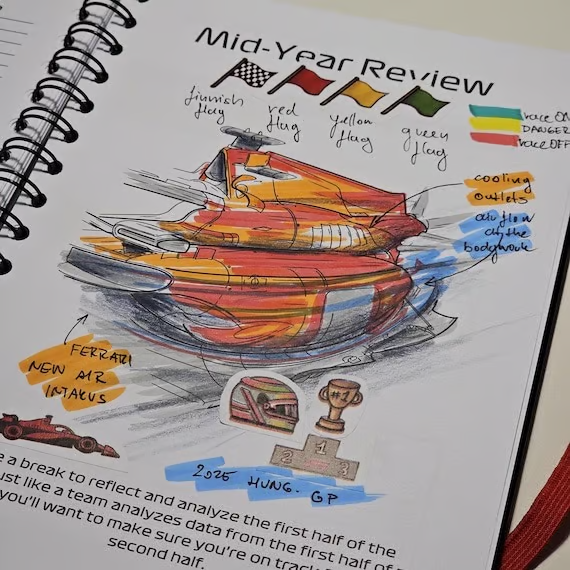 Mid-Year Review
finnish
flag
red
flag
yellow
flag
green
flag
race ON
DANGER
race OFF
cooling
outlets
air flow
on the
bodywork
FERRARI
NEW AIR
INTAKES
#1
1
2
3
2025 HUNG. GP
e a break to reflect and analyze the first half of the
ust like a team analyzes data from the first half of
you'll want to make sure you're on track
second half.